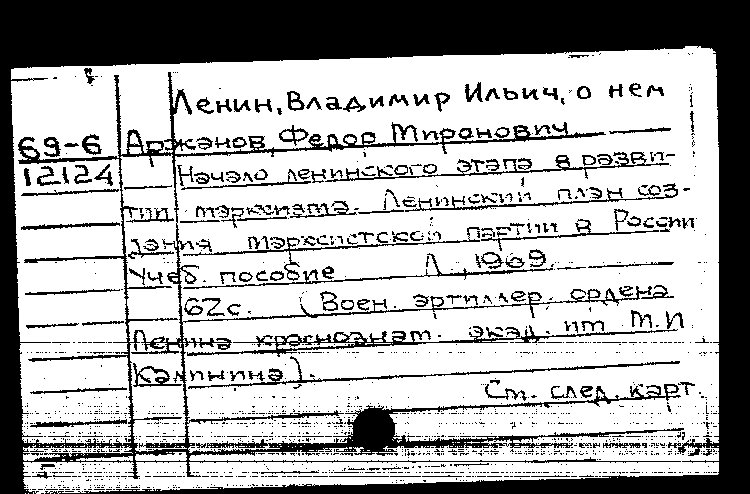 Ленин, Владимир Ильич, о нем
69-6 Аржанов, Федор Миронович.
12124 Начало ленинского этапа в разви-
тии марксизма. Ленинский план соз-
дания марксистской партии в России
Учеб. пособие Л., 1969.
62с. (Воен. артиллер. ордена
Ленина краснознам. акад. им М.И
Калинина).
См. след. карт.